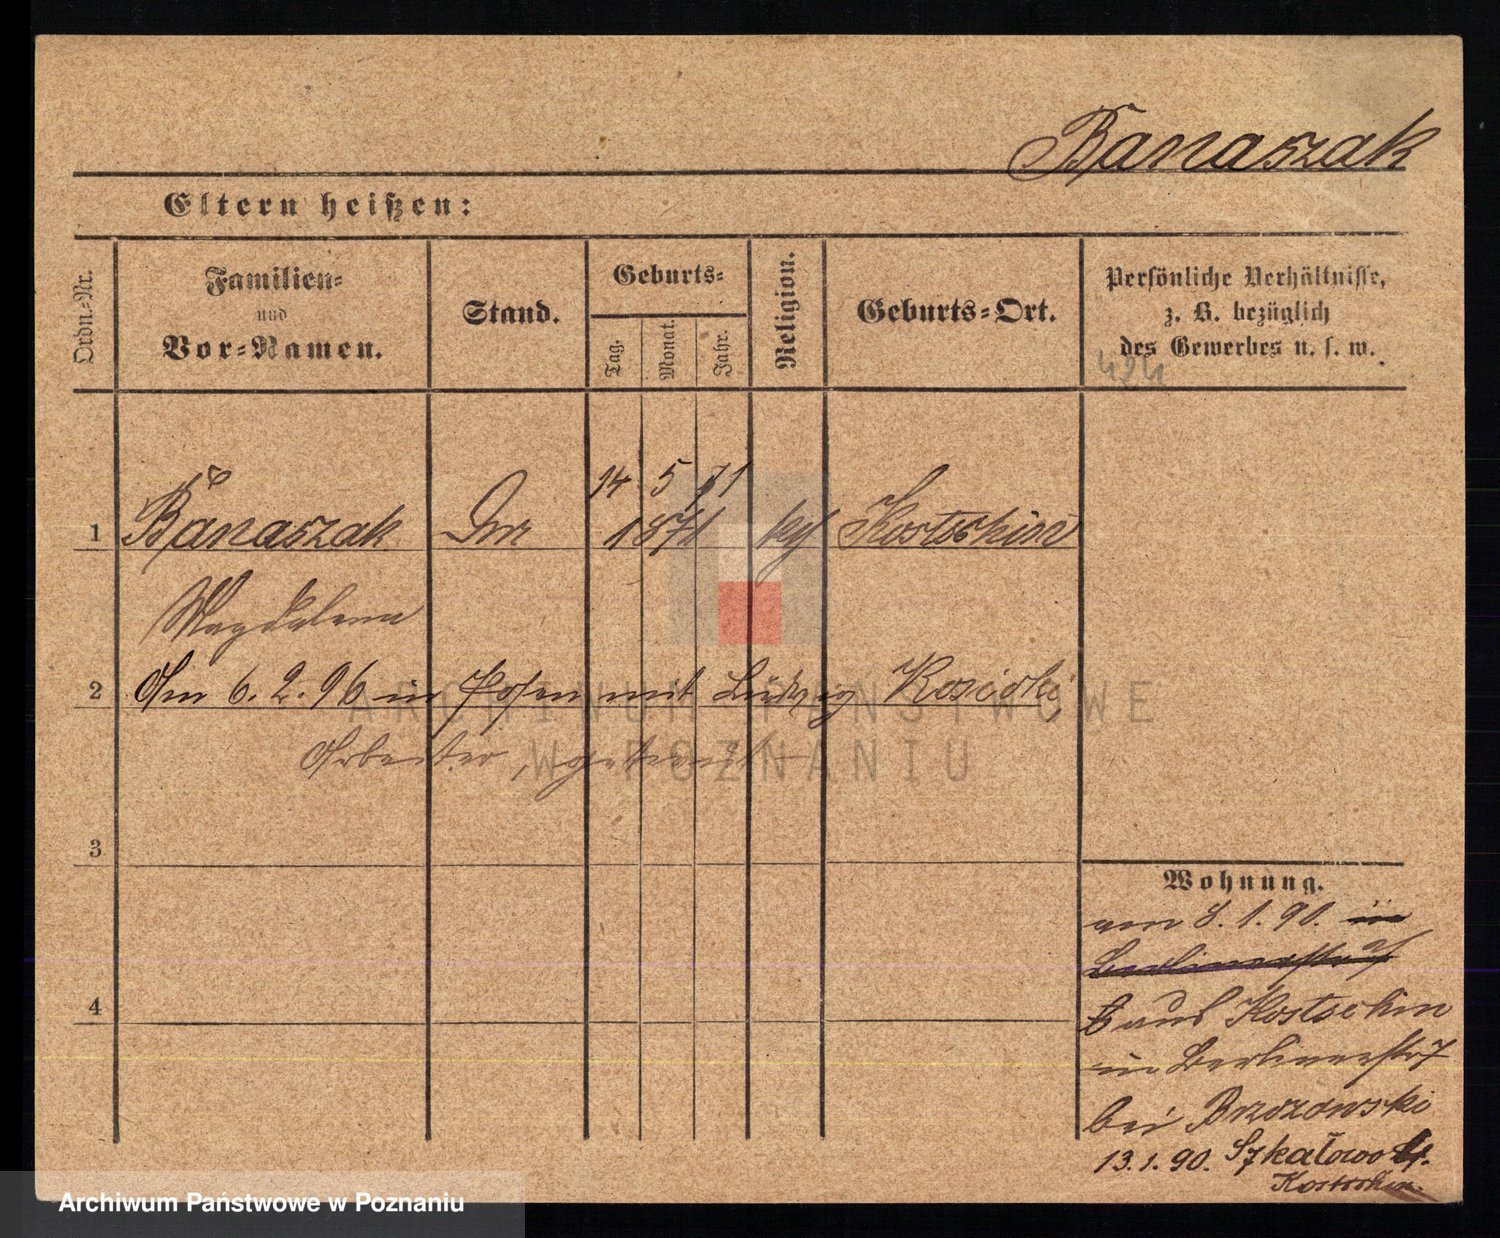 Banaszak
Eltern heißen:
Ordn.-Nr.
Familien-
und
Vor-Namen.
Stand.
Geburts-
Tag.
Monat.
Jahr.
Religion.
Geburts-Ort.
Persönliche Verhältnisse,
z. B. bezüglich
des Gewerbes u. s. w.
14 5 71
1 Banaszak 1871 kth Kostschin
Magdalena
2 Am 6. 2. 96 in Posen mit Ludwig Kosicki
Arbeiter, getraut
3
4
Wohnung.
am 8. 1. 90. in
Berlinerstr
aus Kostschin
in Berlinerstr 7
bei Brzozowski
13. 1. 90. Szkałowo
Kostschin.
ARCHIWUM PAŃSTWOWE
W POZNANIU
Archiwum Państwowe w Poznaniu